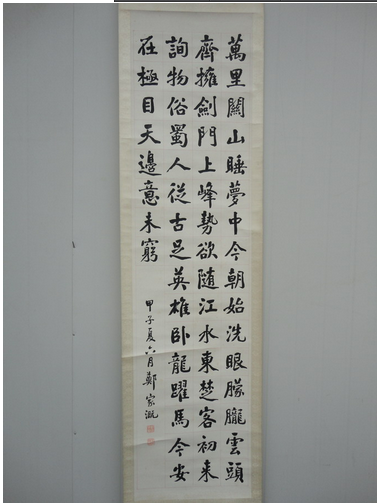 萬里關山睡夢中今朝始洗眼朦朧雲頭
齊擁劍門上峰勢欲隨江水東楚客初來
詢物俗蜀人從古足英雄臥龍躍馬今安
在極目天邊意未窮
甲子夏六月鄭家溉